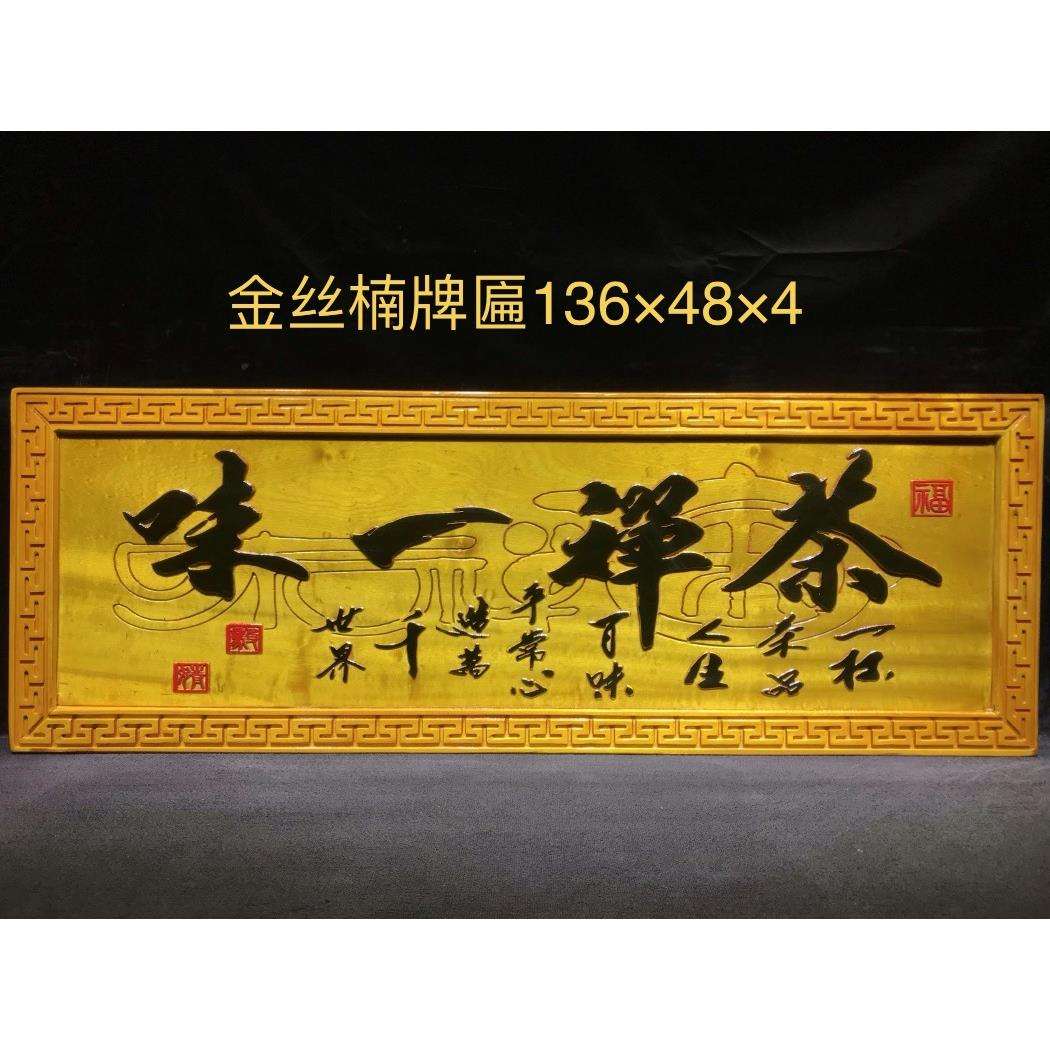 金丝楠牌匾136×48×4
福
茶禪一味
一杯
茶品
人生
百味
平常心
造萬
千
世界